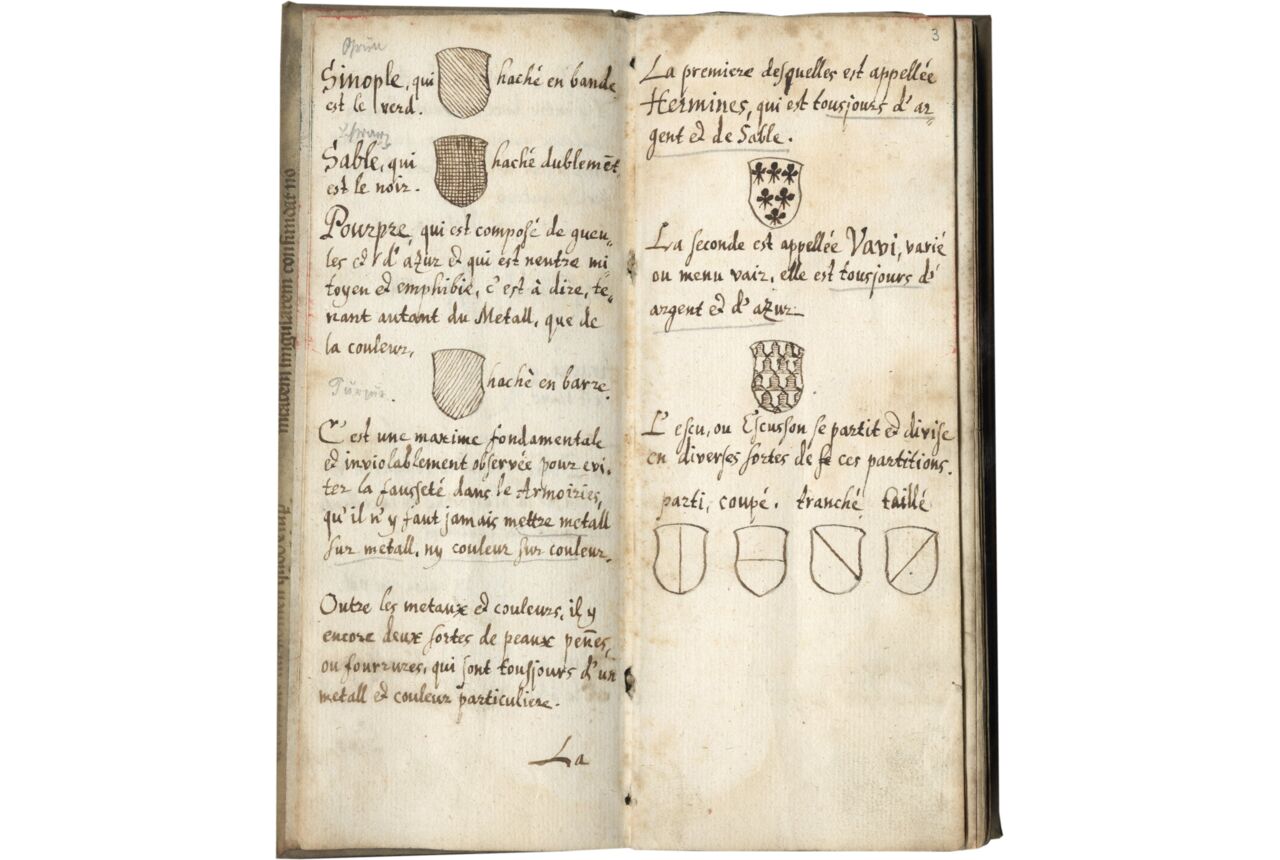 Grün
Sinople, qui haché en bande
est le verd.
Schwarz
Sable, qui haché dublemēt
est le noir.
Pourpre, qui est composé de gueu„
les et d'azur et qui est neutre mi
toyen et emphibie, c'est à dire, te„
nant autant du Metall, que de
la couleur.
Purpur. hachè en barre.
C'est une maxime fondamentale
et inviolablement observée pour evi.
ter la fausseté dans le Armoiries,
qu'il n'y faut jamais mettre metall
sur metall, ny couleur sur couleur.
Outre les metaux et couleurs, il y
encore deux sortes de peaux pennes,
ou fourrures, qui sont tousjours d'un
metall et couleur particuliere.
La
3
La premiere desquelles est appellée
Hermines, qui est tousjours d'ar„
gent et de Sable.
La seconde est appellée Vavi, varié
ou menu vair, elle est tousjours d'
argent et d'azur.
L'escu, ou Escusson se partit et divise
en diverses sortes de ces partitions.
parti, coupé. tranché taillé